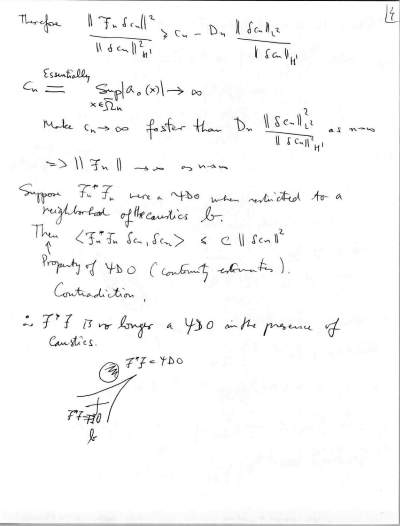 4
Therefore ‖F_n δc_n‖² / ‖δc_n‖²_H¹ ≥ c_n - D_n ‖δc_n‖_L² / ‖δc_n‖_H¹
C_n = Essentially Sup |a_0(x)| → ∞
x∈Ω_n
Make c_n → ∞ faster than D_n ‖δc_n‖²_L² / ‖δc_n‖²_H¹ as n→∞
=> ‖F_n‖ → ∞ as n→∞
Suppose F_n* F_n were a ΨDO when restricted to a
neighborhood of the caustics b.
Then <F_n* F_n δc_n, δc_n> ≤ C ‖δc_n‖²
↑
Property of ΨDO (continuity estimates).
Contradiction.
∴ F*F is no longer a ΨDO in the presence of
caustics.
F*F = ΨDO
F*F
b